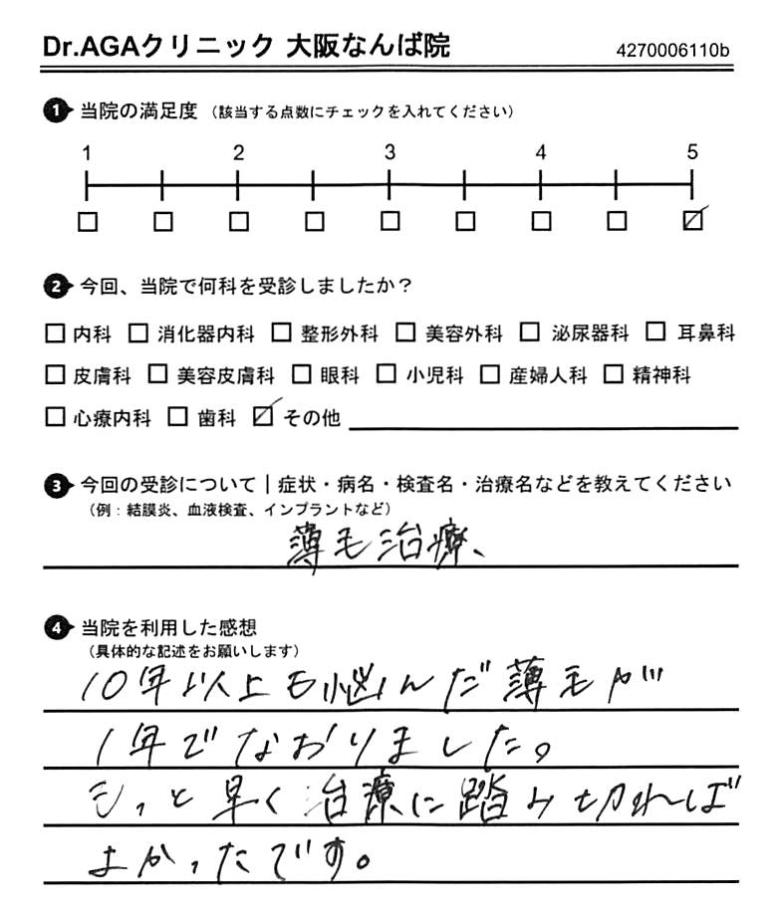 Dr.AGAクリニック 大阪なんば院 4270006110b
1 当院の満足度 （該当する点数にチェックを入れてください）
1 2 3 4 5
2 今回、当院で何科を受診しましたか？
内科 消化器内科 整形外科 美容外科 泌尿器科 耳鼻科
皮膚科 美容皮膚科 眼科 小児科 産婦人科 精神科
心療内科 歯科 その他
3 今回の受診について｜症状・病名・検査名・治療名などを教えてください
（例：結膜炎、血液検査、インプラントなど）
薄毛治療、
4 当院を利用した感想
（具体的な記述をお願いします）
10年以上も悩んだ薄毛が
1年でなおりました。
もっと早く治療に踏み切れば
よかったです。